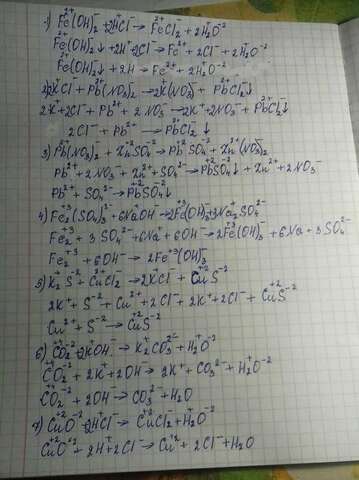 1) Fe²⁺(OH)₂⁻ + 2H⁺Cl⁻ → Fe²⁺Cl₂⁻ + 2H₂⁺O⁻²
Fe²⁺(OH)₂⁻↓ + 2H⁺ + 2Cl⁻ → Fe²⁺ + 2Cl⁻ + 2H₂⁺O⁻²
Fe²⁺(OH)₂⁻↓ + 2H → Fe²⁺ + 2H₂⁺O⁻²
2) 2K⁺Cl⁻ + Pb²⁺(NO₃)₂⁻ → 2K⁺(NO₃)⁻ + Pb²⁺Cl₂⁻↓
2K⁺ + 2Cl⁻ + Pb²⁺ + 2NO₃⁻ → 2K⁺ + 2NO₃⁻ + Pb²⁺Cl₂⁻↓
2Cl⁻ + Pb²⁺ → Pb²⁺Cl₂⁻↓
3) Pb²⁺(NO₃)₂⁻ + Zn²⁺SO₄⁻² → Pb²⁺SO₄⁻² + Zn²⁺(NO₃)₂⁻
Pb²⁺ + 2NO₃⁻ + Zn²⁺ + SO₄²⁻ → Pb⁺²SO₄⁻²↓ + Zn²⁺ + 2NO₃⁻
Pb²⁺ + SO₄²⁻ → Pb⁺²SO₄⁻²↓
4) Fe₂⁺³(SO₄)₃²⁻ + 6Na⁺OH⁻ → 2Fe⁺³(OH)₃⁻ + 3Na₂⁺SO₄²⁻
Fe₂⁺³ + 3SO₄²⁻ + 6Na⁺ + 6OH⁻ → 2Fe⁺³(OH)₃⁻ + 6Na + 3SO₄²⁻
Fe₂⁺³ + 6OH⁻ → 2Fe⁺³(OH)₃⁻
5) K₂⁺S⁻² + Cu²⁺Cl₂⁻ → 2K⁺Cl⁻ + Cu⁺²S⁻²
2K⁺ + S⁻² + Cu²⁺ + 2Cl⁻ + 2K⁺ + 2Cl⁻ + Cu⁺²S⁻²
Cu²⁺ + S⁻² → Cu⁺²S⁻²
6) C⁺⁴O₂⁻² + 2K⁺OH⁻ → K₂⁺CO₃²⁻ + H₂⁺O⁻²
C⁺⁴O₂⁻² + 2K⁺ + 2OH⁻ → 2K⁺ + CO₃²⁻ + H₂⁺O⁻²
C⁺⁴O₂⁻² + 2OH⁻ → CO₃²⁻ + H₂O
7) Cu⁺²O⁻² + 2H⁺Cl⁻ → Cu⁺²Cl₂⁻ + H₂⁺O⁻²
Cu⁺²O⁻² + 2H⁺ + 2Cl⁻ → Cu⁺² + 2Cl⁻ + H₂O